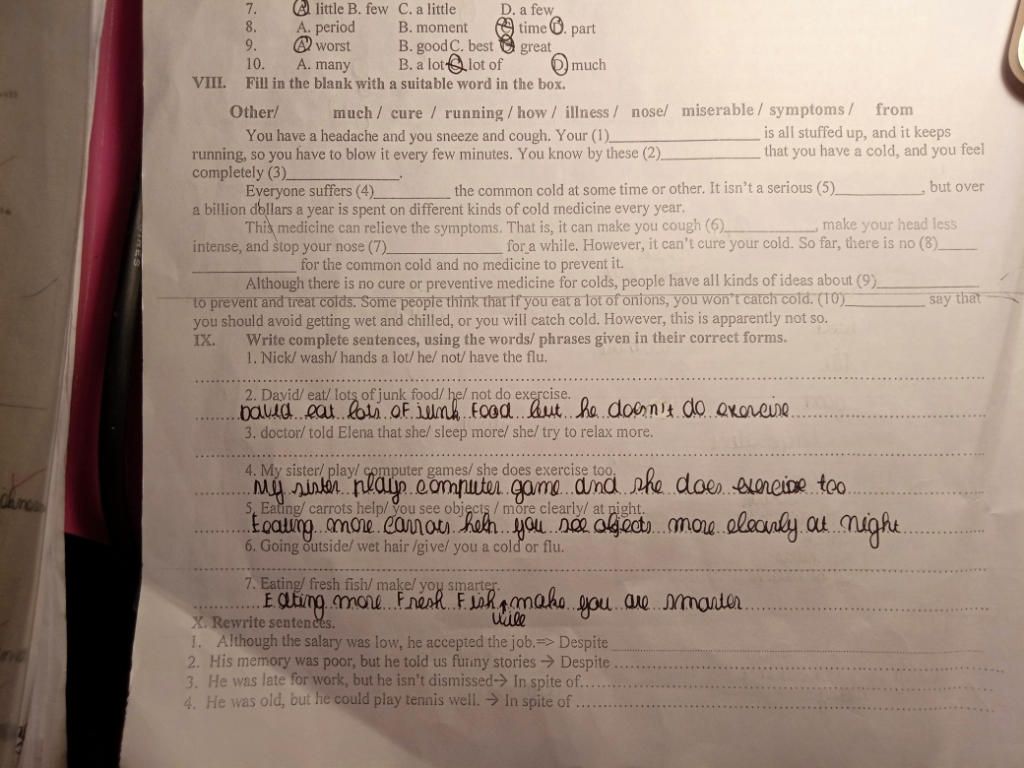 7. A. little B. few C. a little D. a few
8. A. period B. moment C. time D. part
9. A. worst B. good C. best D. great
10. A. many B. a lot C. lot of D. much
VIII. Fill in the blank with a suitable word in the box.
Other/ much / cure / running / how / illness / nose/ miserable / symptoms / from
You have a headache and you sneeze and cough. Your (1)____________ is all stuffed up, and it keeps
running, so you have to blow it every few minutes. You know by these (2)____________ that you have a cold, and you feel
completely (3)____________.
Everyone suffers (4)________ the common cold at some time or other. It isn't a serious (5)__________, but over
a billion dollars a year is spent on different kinds of cold medicine every year.
This medicine can relieve the symptoms. That is, it can make you cough (6)__________, make your head less
intense, and stop your nose (7)____________ for a while. However, it can't cure your cold. So far, there is no (8)____
____________ for the common cold and no medicine to prevent it.
Although there is no cure or preventive medicine for colds, people have all kinds of ideas about (9)____________
to prevent and treat colds. Some people think that if you eat a lot of onions, you won't catch cold. (10)_________ say that
you should avoid getting wet and chilled, or you will catch cold. However, this is apparently not so.
IX. Write complete sentences, using the words/ phrases given in their correct forms.
1. Nick/ wash/ hands a lot/ he/ not/ have the flu.
2. David/ eat/ lots of junk food/ he/ not do exercise.
David eat lots of junk food but he doesn't do exercise
3. doctor/ told Elena that she/ sleep more/ she/ try to relax more.
4. My sister/ play/ computer games/ she does exercise too.
My sister plays computer game and she does exercise too
5. Eating/ carrots help/ you see objects / more clearly/ at night.
Eating more carrots help you see objects more clearly at night
6. Going outside/ wet hair /give/ you a cold or flu.
7. Eating/ fresh fish/ make/ you smarter.
Eating more Fresh Fish make you are smarter
will
X. Rewrite sentences.
1. Although the salary was low, he accepted the job.=> Despite
2. His memory was poor, but he told us funny stories → Despite
3. He was late for work, but he isn't dismissed→ In spite of
4. He was old, but he could play tennis well. → In spite of